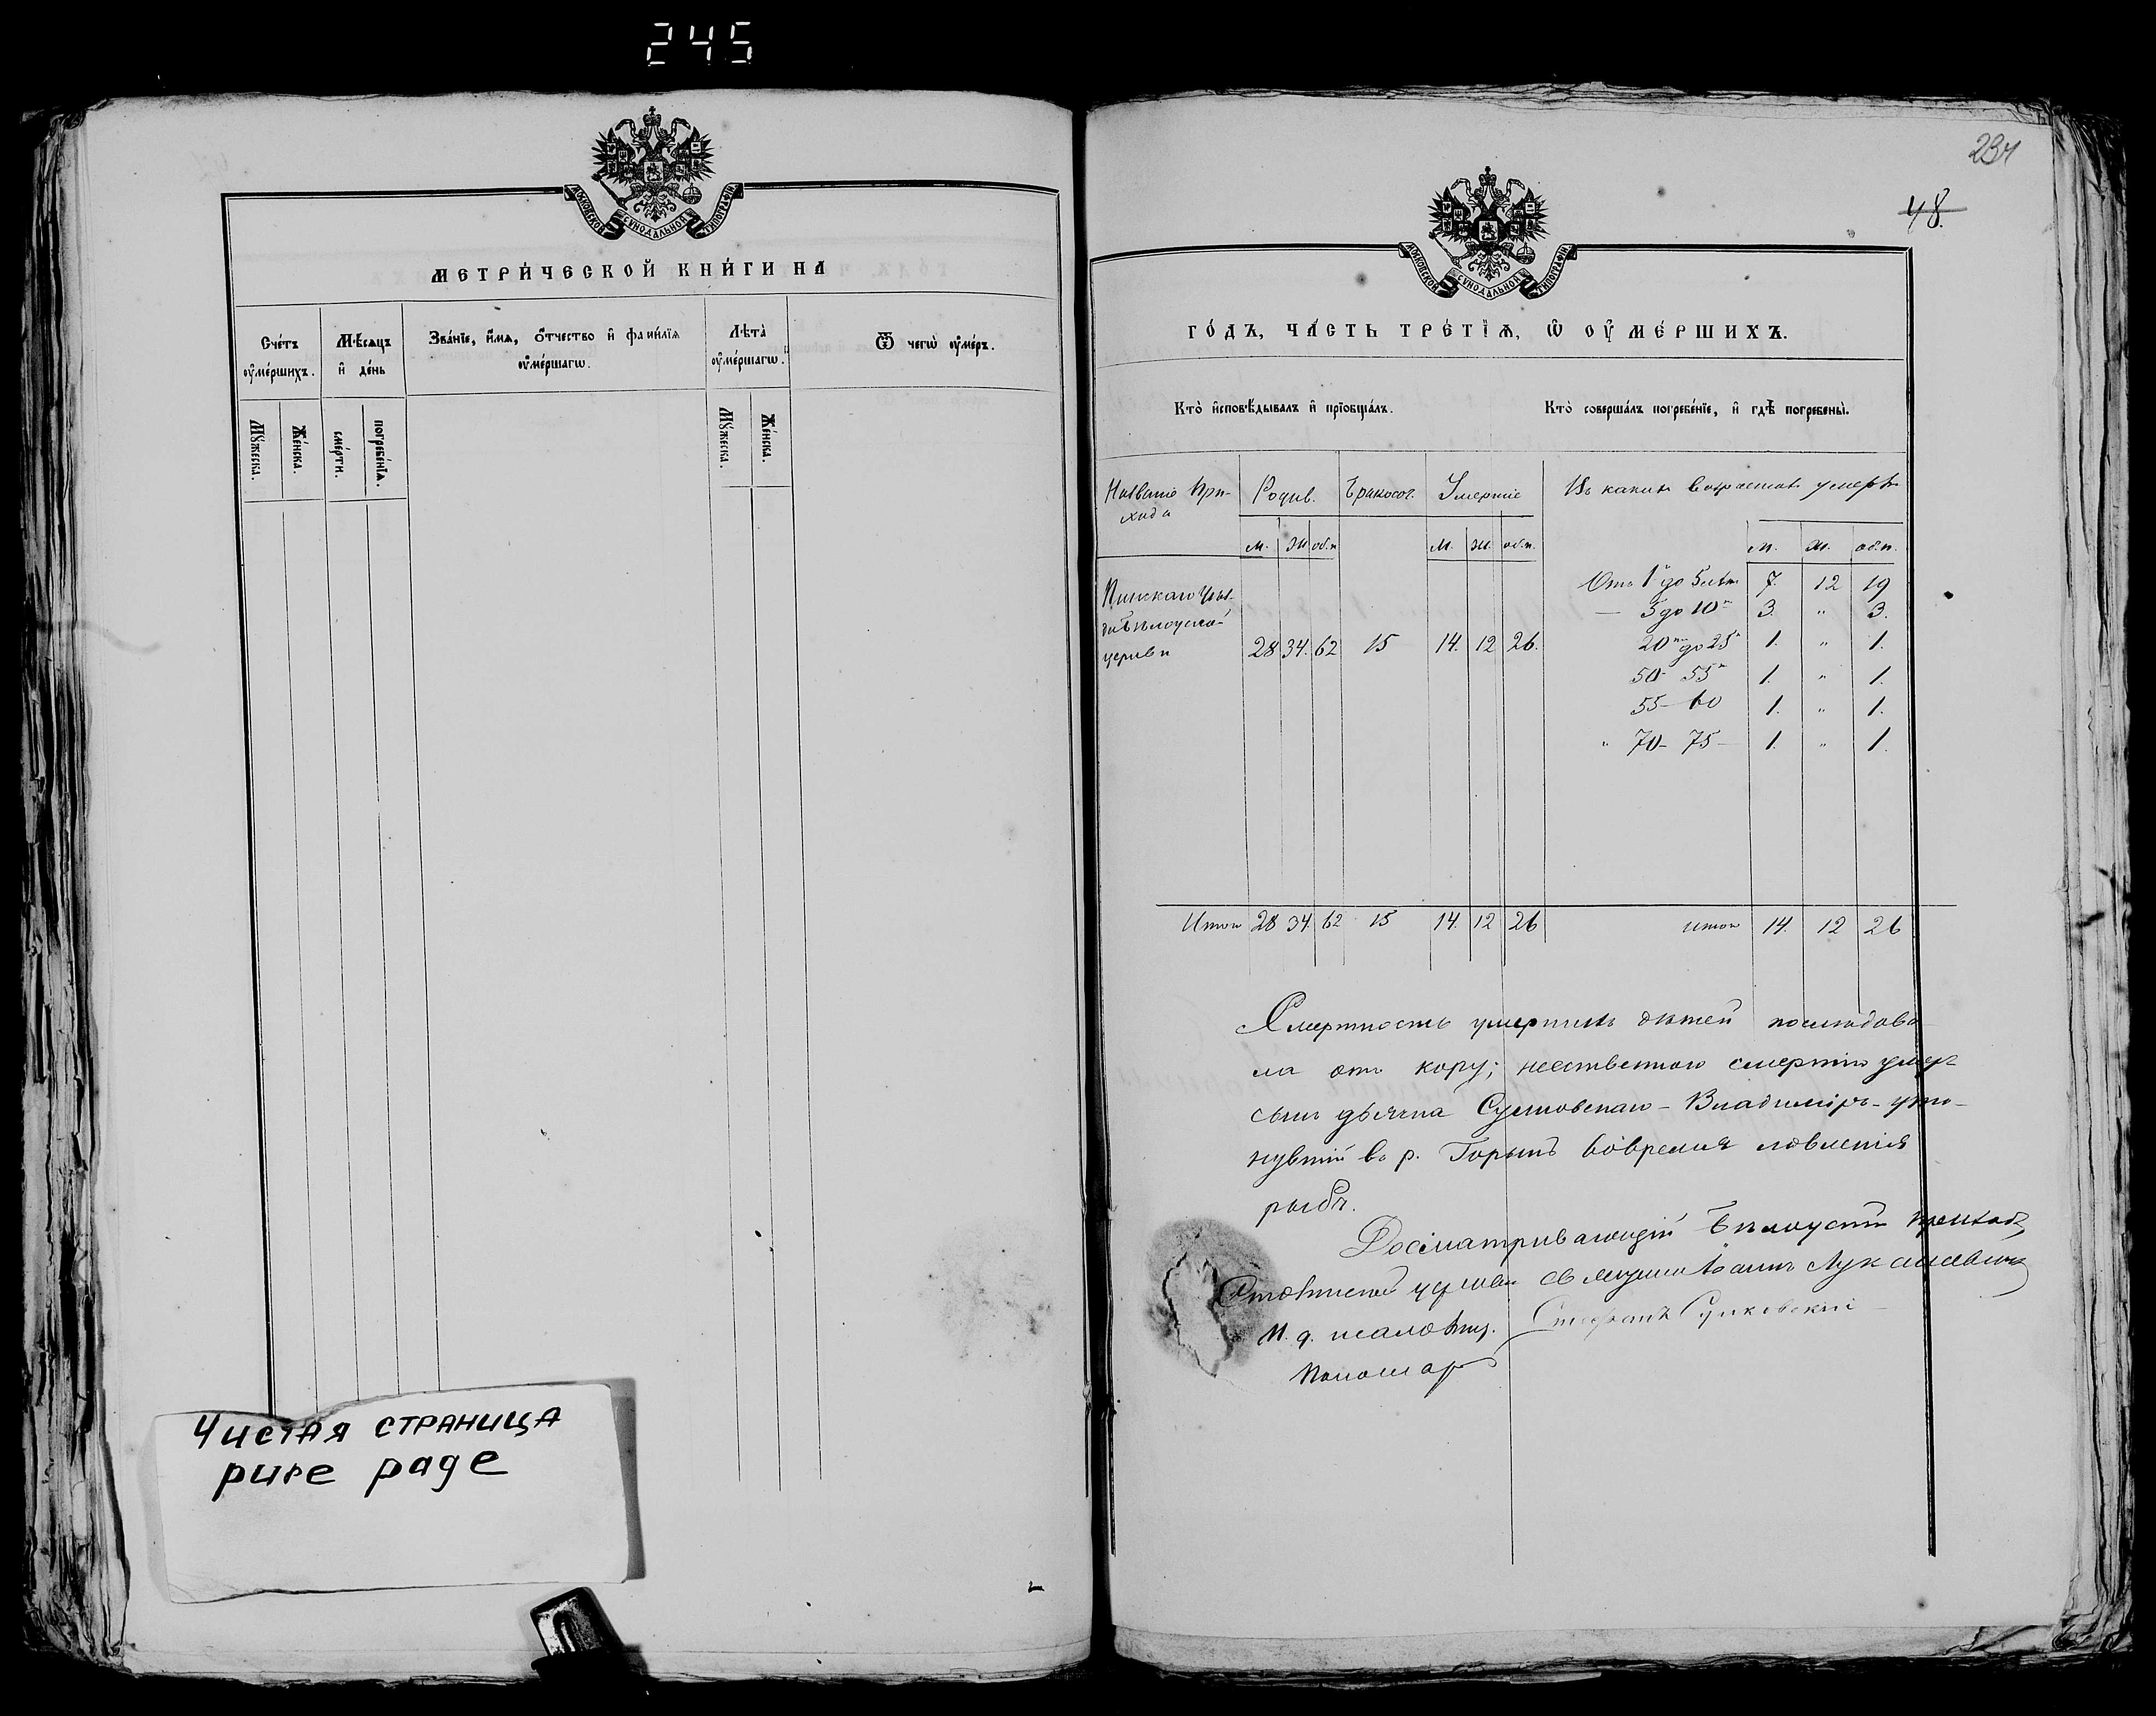 245
МОСКОВСКОЙ СѴНОДАЛЬНОЙ ТИПОГРАФІИ
МЕТРИ́ЧЕСКОЙ КНИ́ГИ НА
Сче́тъ ᲂу҆ме́ршихъ.
Мѣ́сяцъ и҆ де́нь
Зва́нїе, и҆́мѧ, ѻ҆́тчество и҆ фами́лїѧ ᲂу҆ме́ршагѡ.
Лѣ́та ᲂу҆ме́ршагѡ.
Ѿ чегѡ̀ ᲂу҆ме́ръ.
Мꙋ́жеска.
Же́нска.
сме́рти.
погребе́нїѧ.
Мꙋ́жеска.
Же́нска.
Чистая страница
pure page
234
48.
МОСКОВСКОЙ СѴНОДАЛЬНОЙ ТИПОГРАФІИ
ГО́ДЪ, ЧА́СТЬ ТРЕ́ТЇѦ, Ѡ҆ ОУ҆МЕ́РШИХЪ.
Кто̀ и҆сповѣ́дывалъ и҆ прїѡбща́лъ.
Кто̀ соверша́лъ погребе́нїе, и҆ гдѣ̀ погребены̀.
Названіе При-
хода
Родив. Бракосоч. Умершіе
Въ какихъ возрастахъ умерли
м. ж об.п
м. ж. об.п.
м. ж. об.п.
Пинскаго Уѣз-
да Бѣлоуской
церкви
28 34. 62 15 14. 12 26.
Отъ 1 до 5 лѣтъ 7. 12 19
— 5 до 10 3. " 3.
20 до 25 1. " 1.
50- 55 1. " 1.
55- 60 1. " 1.
" 70- 75- 1. " 1.
Итого 28 34 62 15 14. 12 26
итого 14. 12 26
Смертность умершихъ дѣтей послѣдова
ла отъ кору; неественною смертію умеръ
сынъ дьячка Сулковскаго - Владиміръ - уто-
нувшій въ р. Горынѣ вовремя ловленія
рыбъ.
церкви Священникъ Іоаннъ Лукашевичъ
И. д. псаломщ. Стефанъ Сулковскій
Пономарь